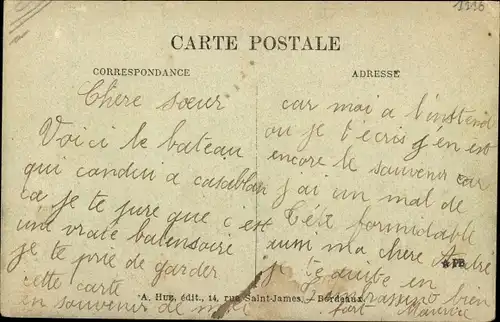 1916
CARTE POSTALE
CORRESPONDANCE
ADRESSE
Chère sœur
Voici le bateau
qui condui a casablan
ca je te jure que c est
une vraie balensoire
je te prie de garder
cette carte
en souvenir de moi
car moi a l'instend
ou je t'écris j'en est
encore le souvenir car
j'ai un mal de
tête formidable
ma chère
je quite en
t'embrassant bien
fort Maurice
A. Hue, édit., 14, rue Saint-James. - Bordeaux